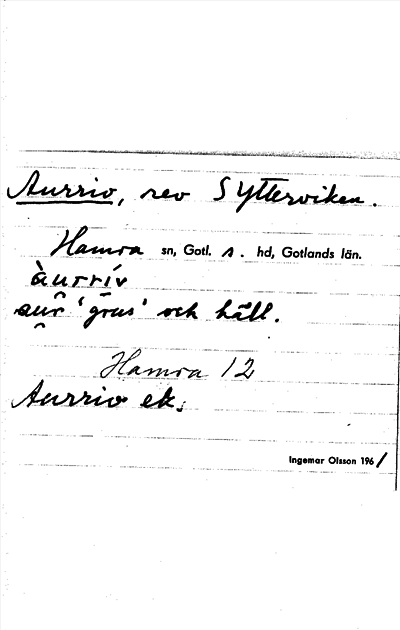 Aurriv, rev S Ytterviken.
Hamra sn, Gotl. s. hd, Gotlands län.
àurrív
aur 'grus' och häll.
Hamra 12
Aurriv ek.
Ingemar Olsson 1961